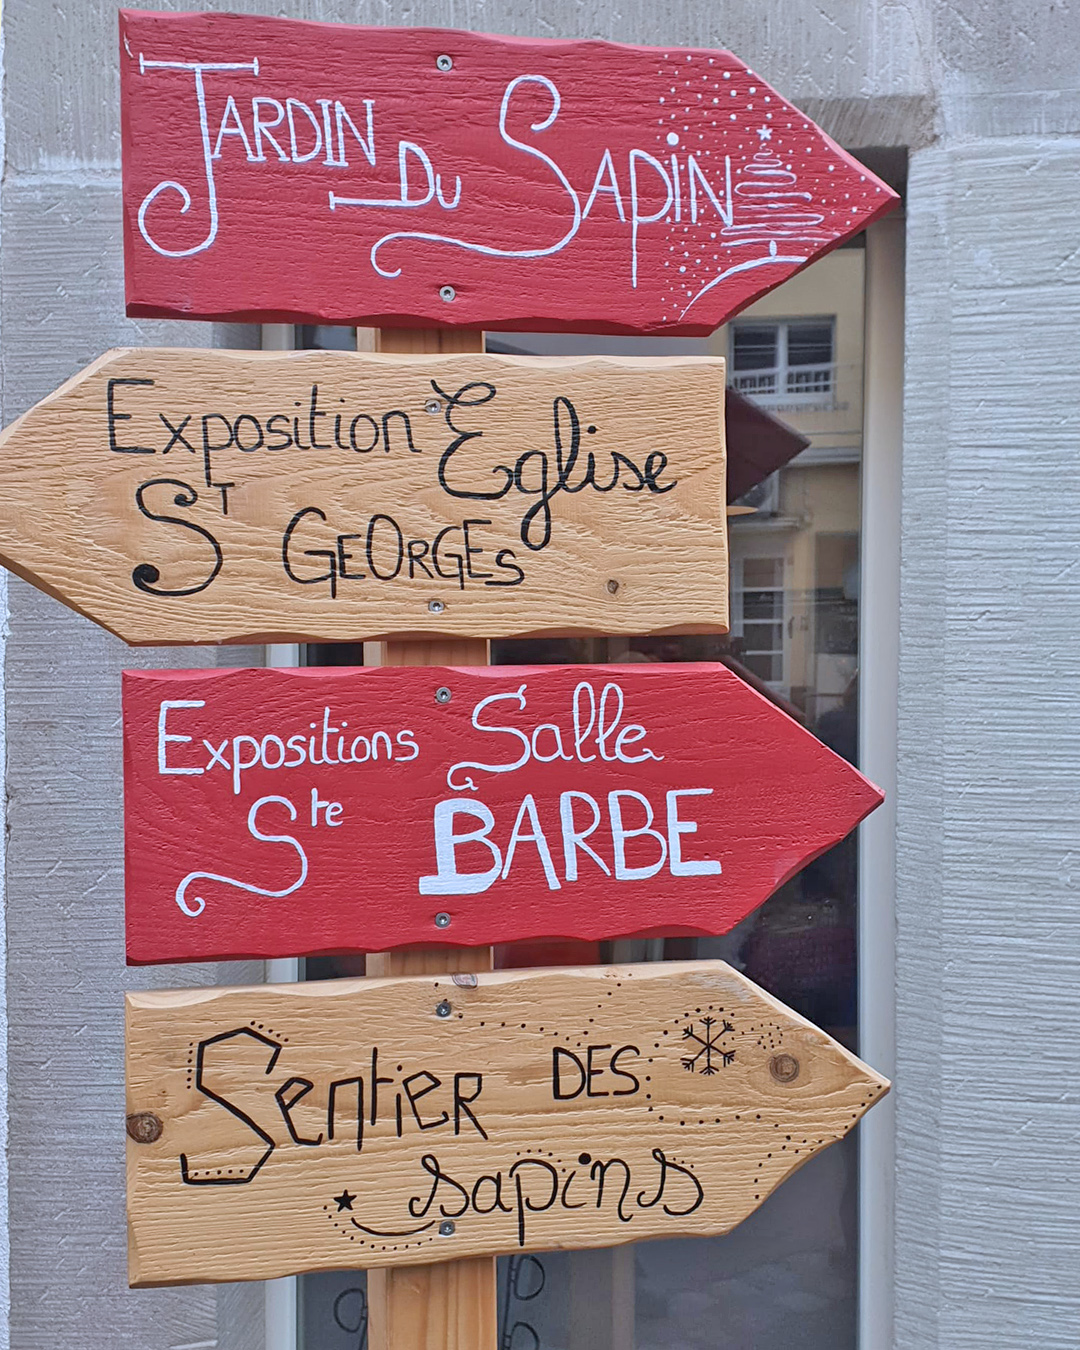 Jardin du Sapin
Exposition Eglise
St Georges
Expositions Salle
Ste BARBE
Sentier des
sapins